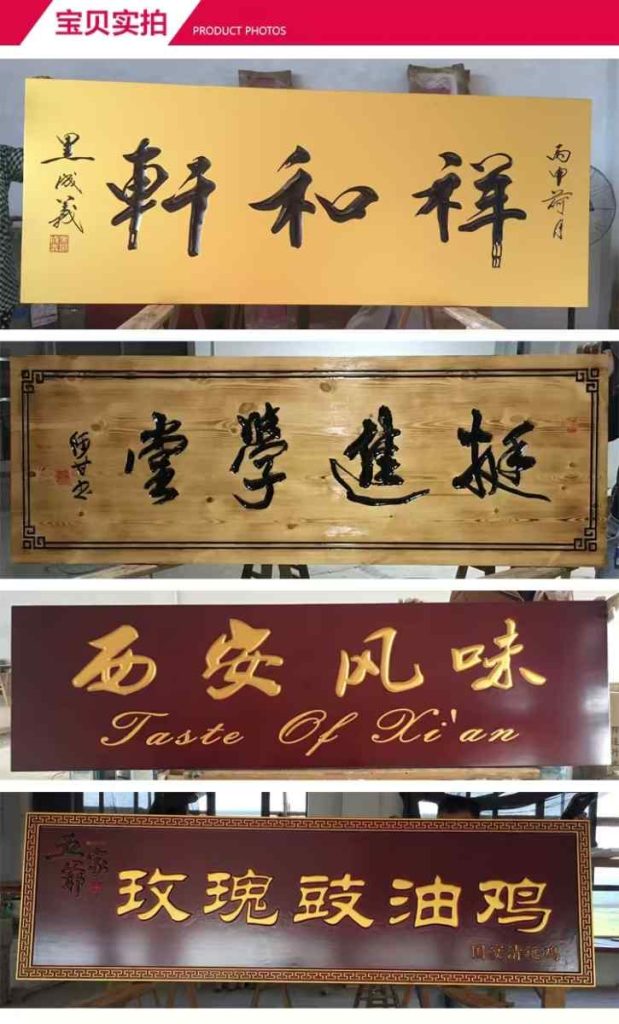 宝贝实拍 PRODUCT PHOTOS
丙申荷月
祥和軒
成義
挺進學堂
西安风味
Taste Of Xi'an
五爺
玫瑰豉油鸡
国宴清远鸡